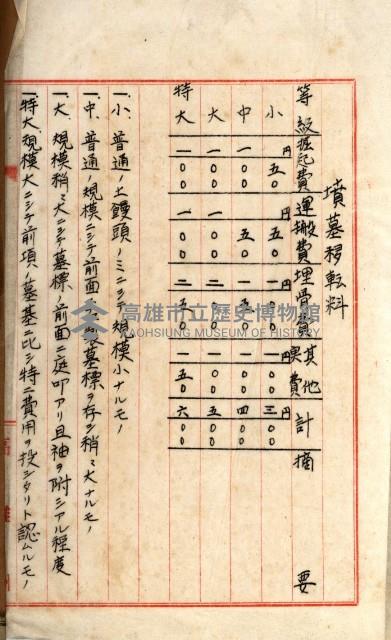 墳墓移転料
等級 掘起費 運搬費 埋骨費 其他実費 計 摘要
小 円五〇 円五〇 円一〇〇 円一〇〇 円三〇〇
中 一〇〇 五〇 一五〇 一〇〇 四〇〇
大 一〇〇 一〇〇 二〇〇 一〇〇 五〇〇
特大 一〇〇 一〇〇 二五〇 一五〇 六〇〇
一、小、普通ノ土饅頭ノミニシテ規模小ナルモノ
一、中、普通ノ規模ニシテ前面ニ墓標ヲ存シ稍々大ナルモノ
一、大、規模稍々大ニシテ墓標ノ前面ニ庭叩アリ且袖ヲ附シアル程度
一、特大、規模大ニシテ前項ノ墓基ニ比シ特ニ費用ヲ投シタリト認ムルモノ
高雄市立歷史博物館
KAOHSIUNG MUSEUM OF HISTORY